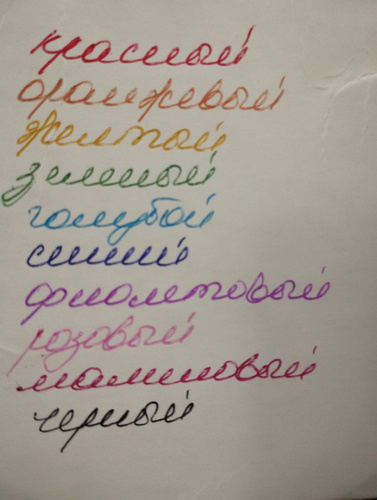 красный
оранжевый
желтый
зеленый
голубой
синий
фиолетовый
розовый
малиновый
черный